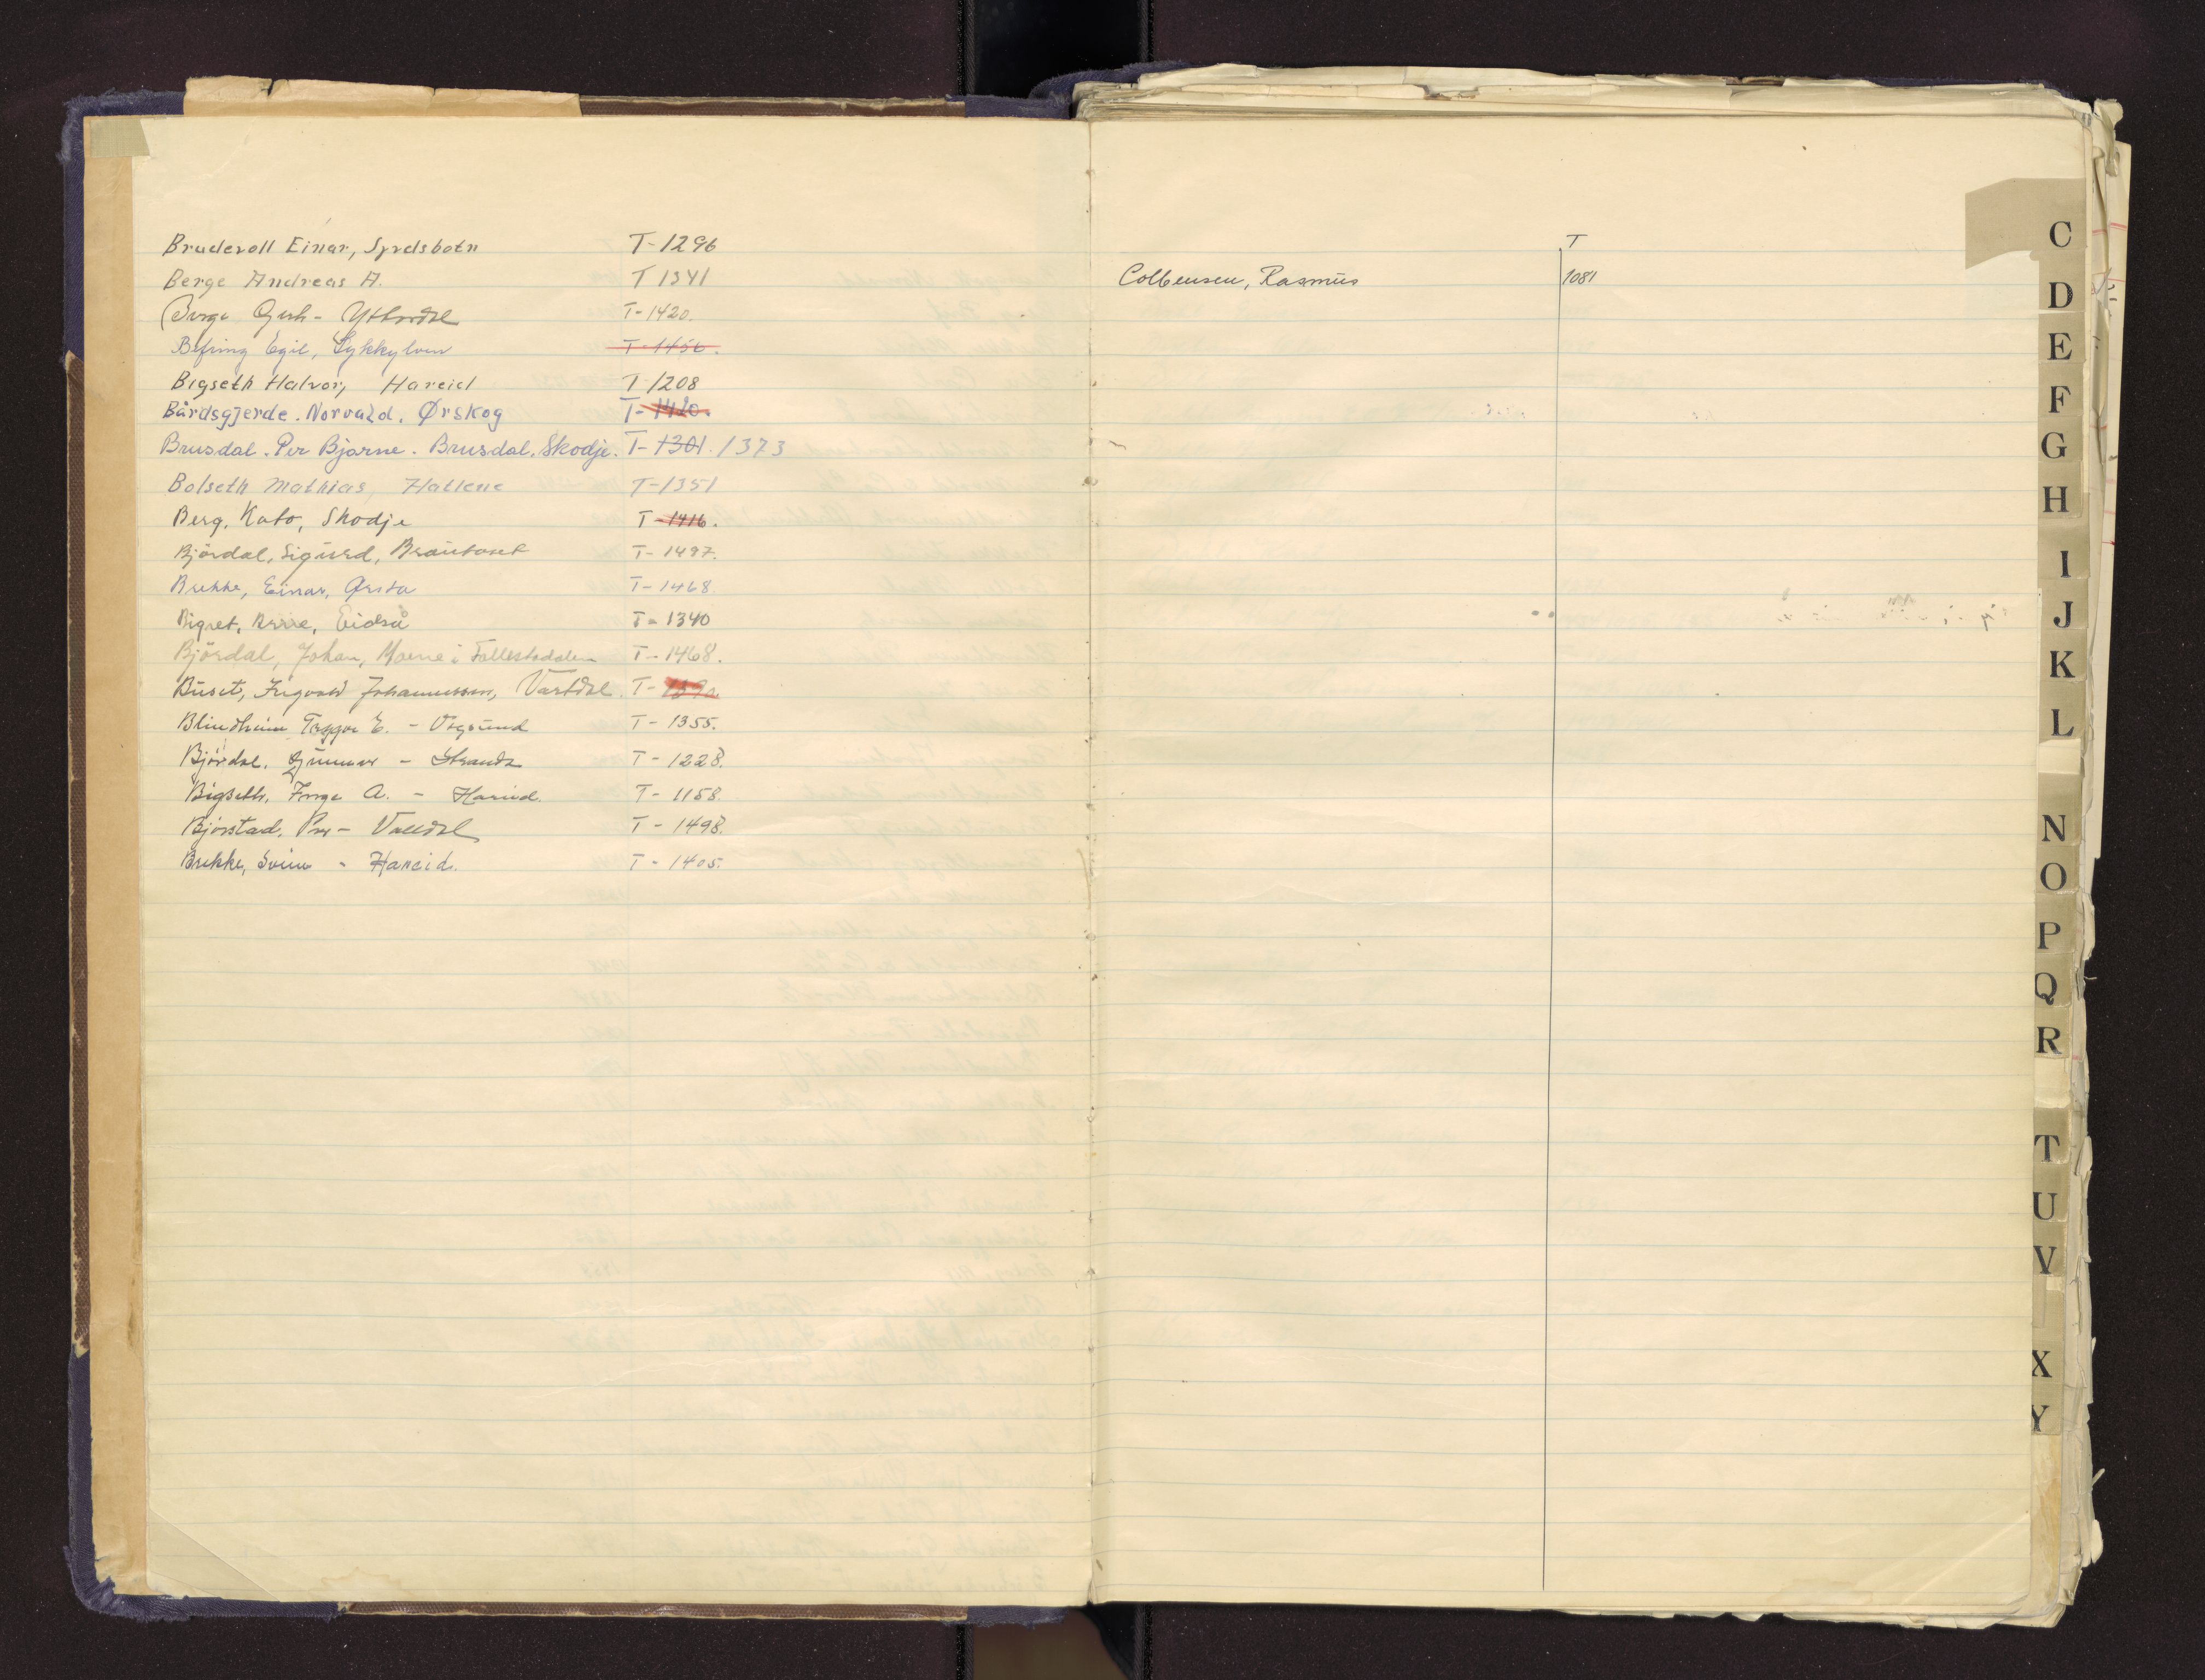 Brudevoll Einar, Syvdsbotn T-1296
Berge Andreas A. T 1341
Berge T-1420.
Befring Egil, Sykkylven T-1456.
Bigseth Halvor, Hareid T-1208
Bårdsgjerde. Norvald. Ørskog T-1420.
Brusdal. Per Bjarne. Brusdal. Skodje. T-1301. 1373
Bolseth Mathias, T-1351
Berg, Kato, Skodje T-1416.
Bjørdal, Sigurd, T-1497.
Brekke, Einar, Ørsta T-1468.
Eidså T-1340
Bjørdal, Johan, i T-1468.
Buset, Ingvald Johannessen, Vartdal. T-
Blindheim E. - Vegsund T-1355.
Bjørdal, Gunnar - Stranda T-1228.
Bigseth, Inge A. - Hareid. T-1158.
Bjørstad, Per - Valldal T-1498.
Brekke, Svein - Hareid. T-1405.
T
Colbensen, Rasmus 1081
C
D
E
F
G
H
I
J
K
L
N
O
P
Q
R
T
U
V
X
Y